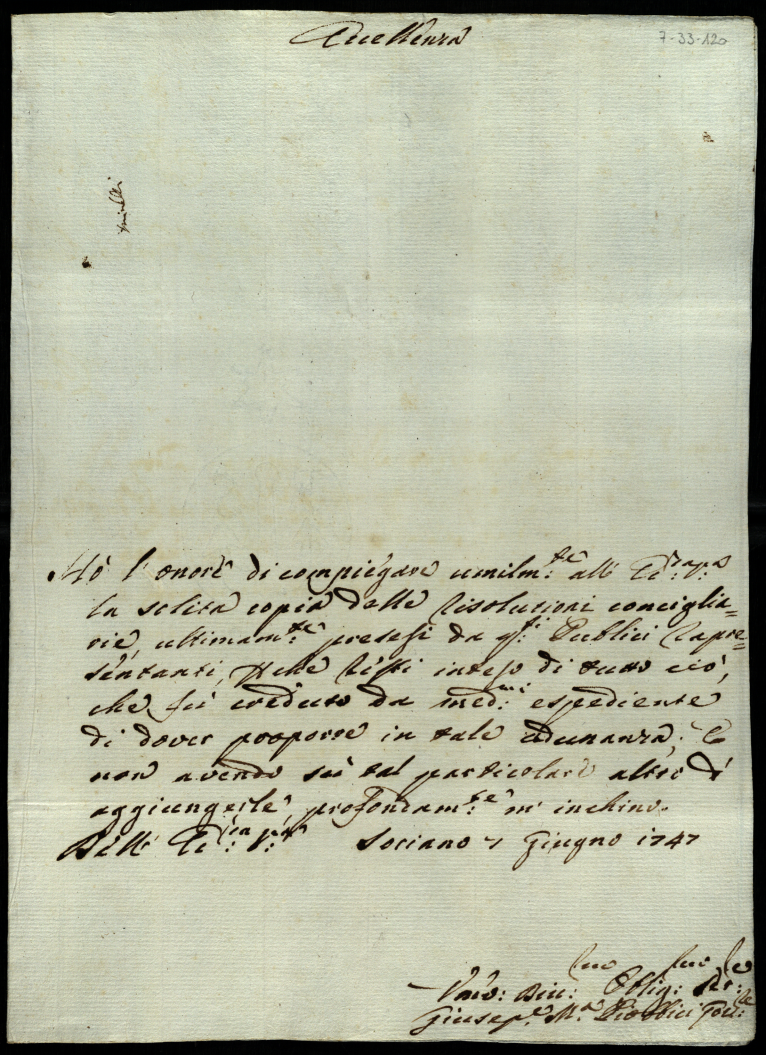 Eccellenza
7-33-120
Hò l'onore di compiegare umilm:te all' Ec:za V:ra
la solita copia delle Risoluzioni consiglia=
rie, ultimam:te presesi da q:ti Publici Rapre=
sentanti, p che resti inteso di tutto ciò,
che fù creduto da med:mi espediente
di dover proporre in tale adunanza; E
non avendo sù tal particolare altro dà
aggiungerle, profondam:te m' inchino.
Dell' Ec:za V:ra Soriano 7 Giugno 1747
Umo: Divo: Oblig: Ser:
Giusep:e M:a Gov: